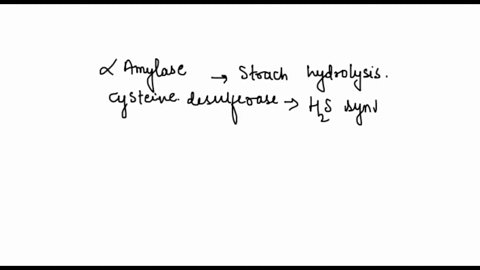 α Amylase → Strach hydrolysis.
cysteine desulferase → H₂S synt